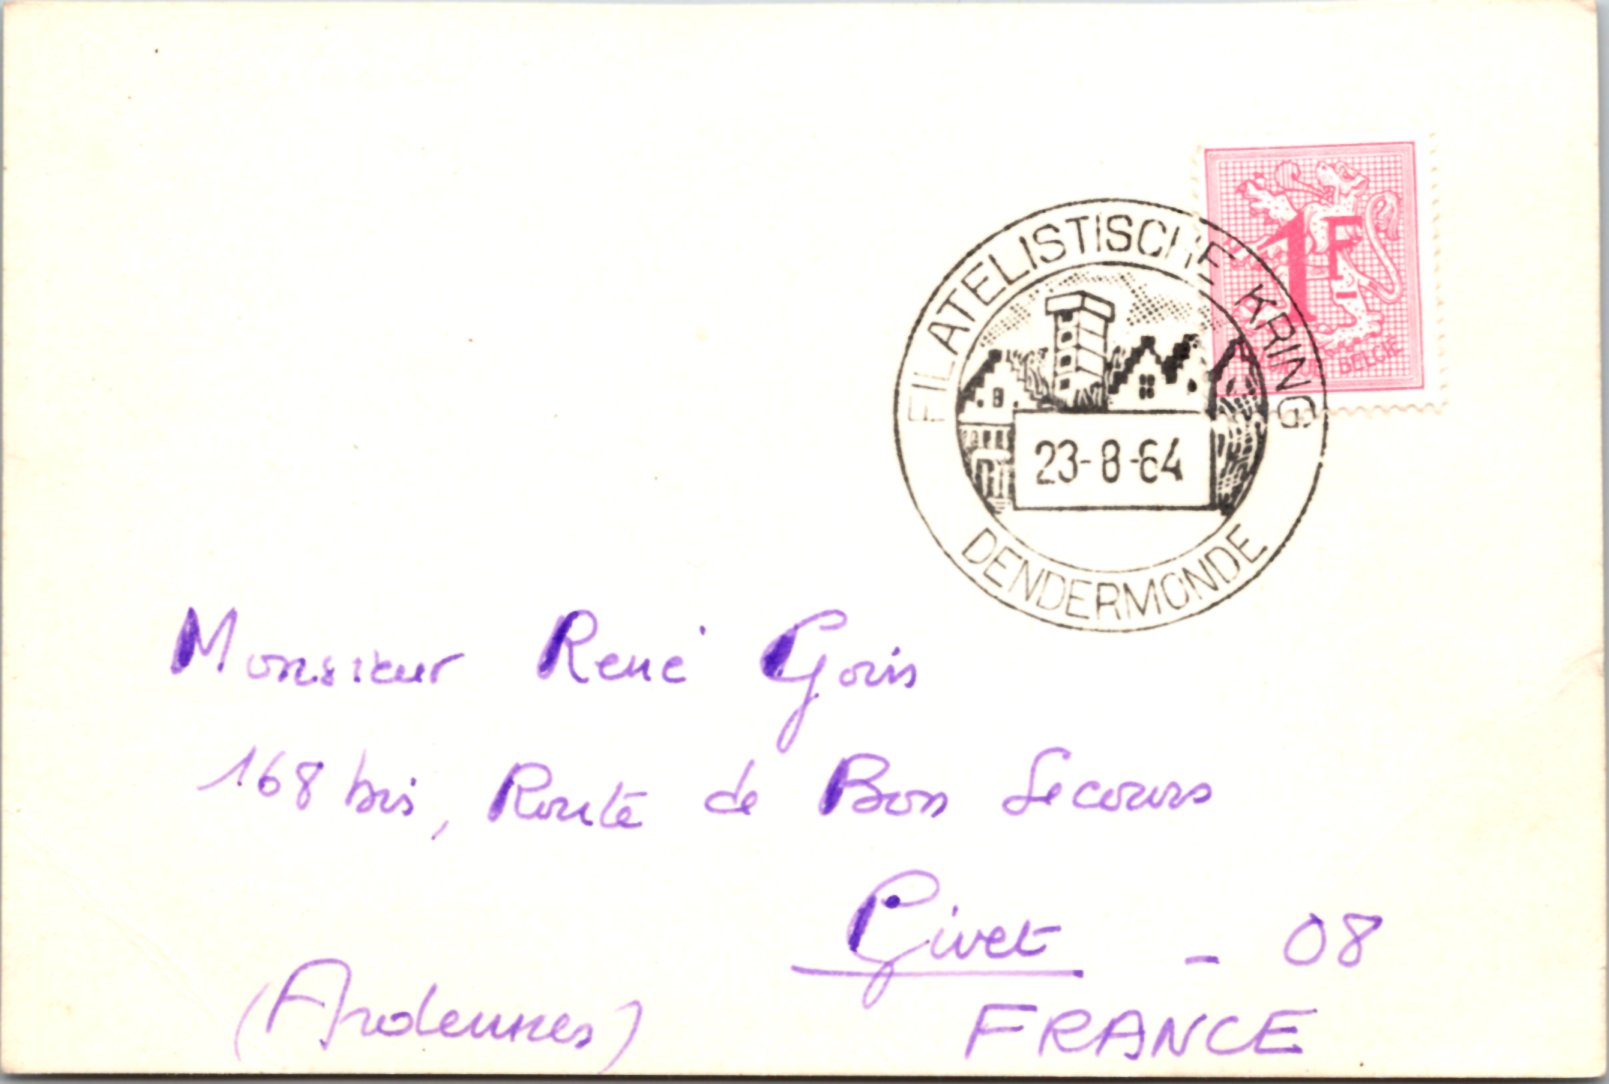 FILATELISTISCHE KRING
1F
BELGIE
23-8-64
DENDERMONDE
Monsieur René Goris
168 bis, Route de Bon Secours
Givet - 08
(Ardennes) FRANCE